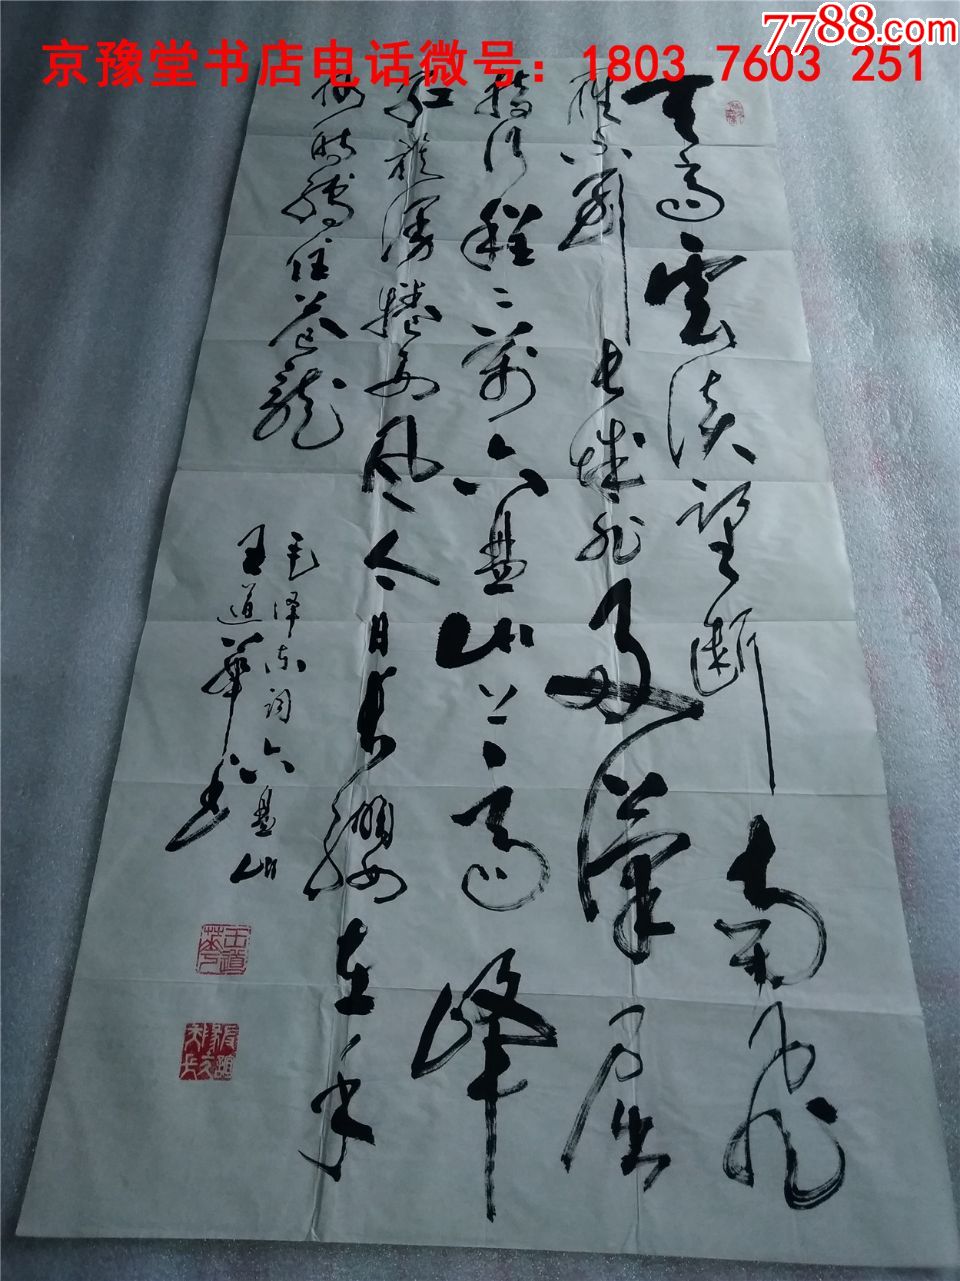 7788.com
京豫堂书店电话微号：1803 7603 251
天高雲淡望断南飛
雁不到長城非好漢屈
指行程二萬六盘山上高峰
红旗漫捲西风今日長纓在手
何时缚住苍龍
毛泽东词六盘山
王道華书
王道華